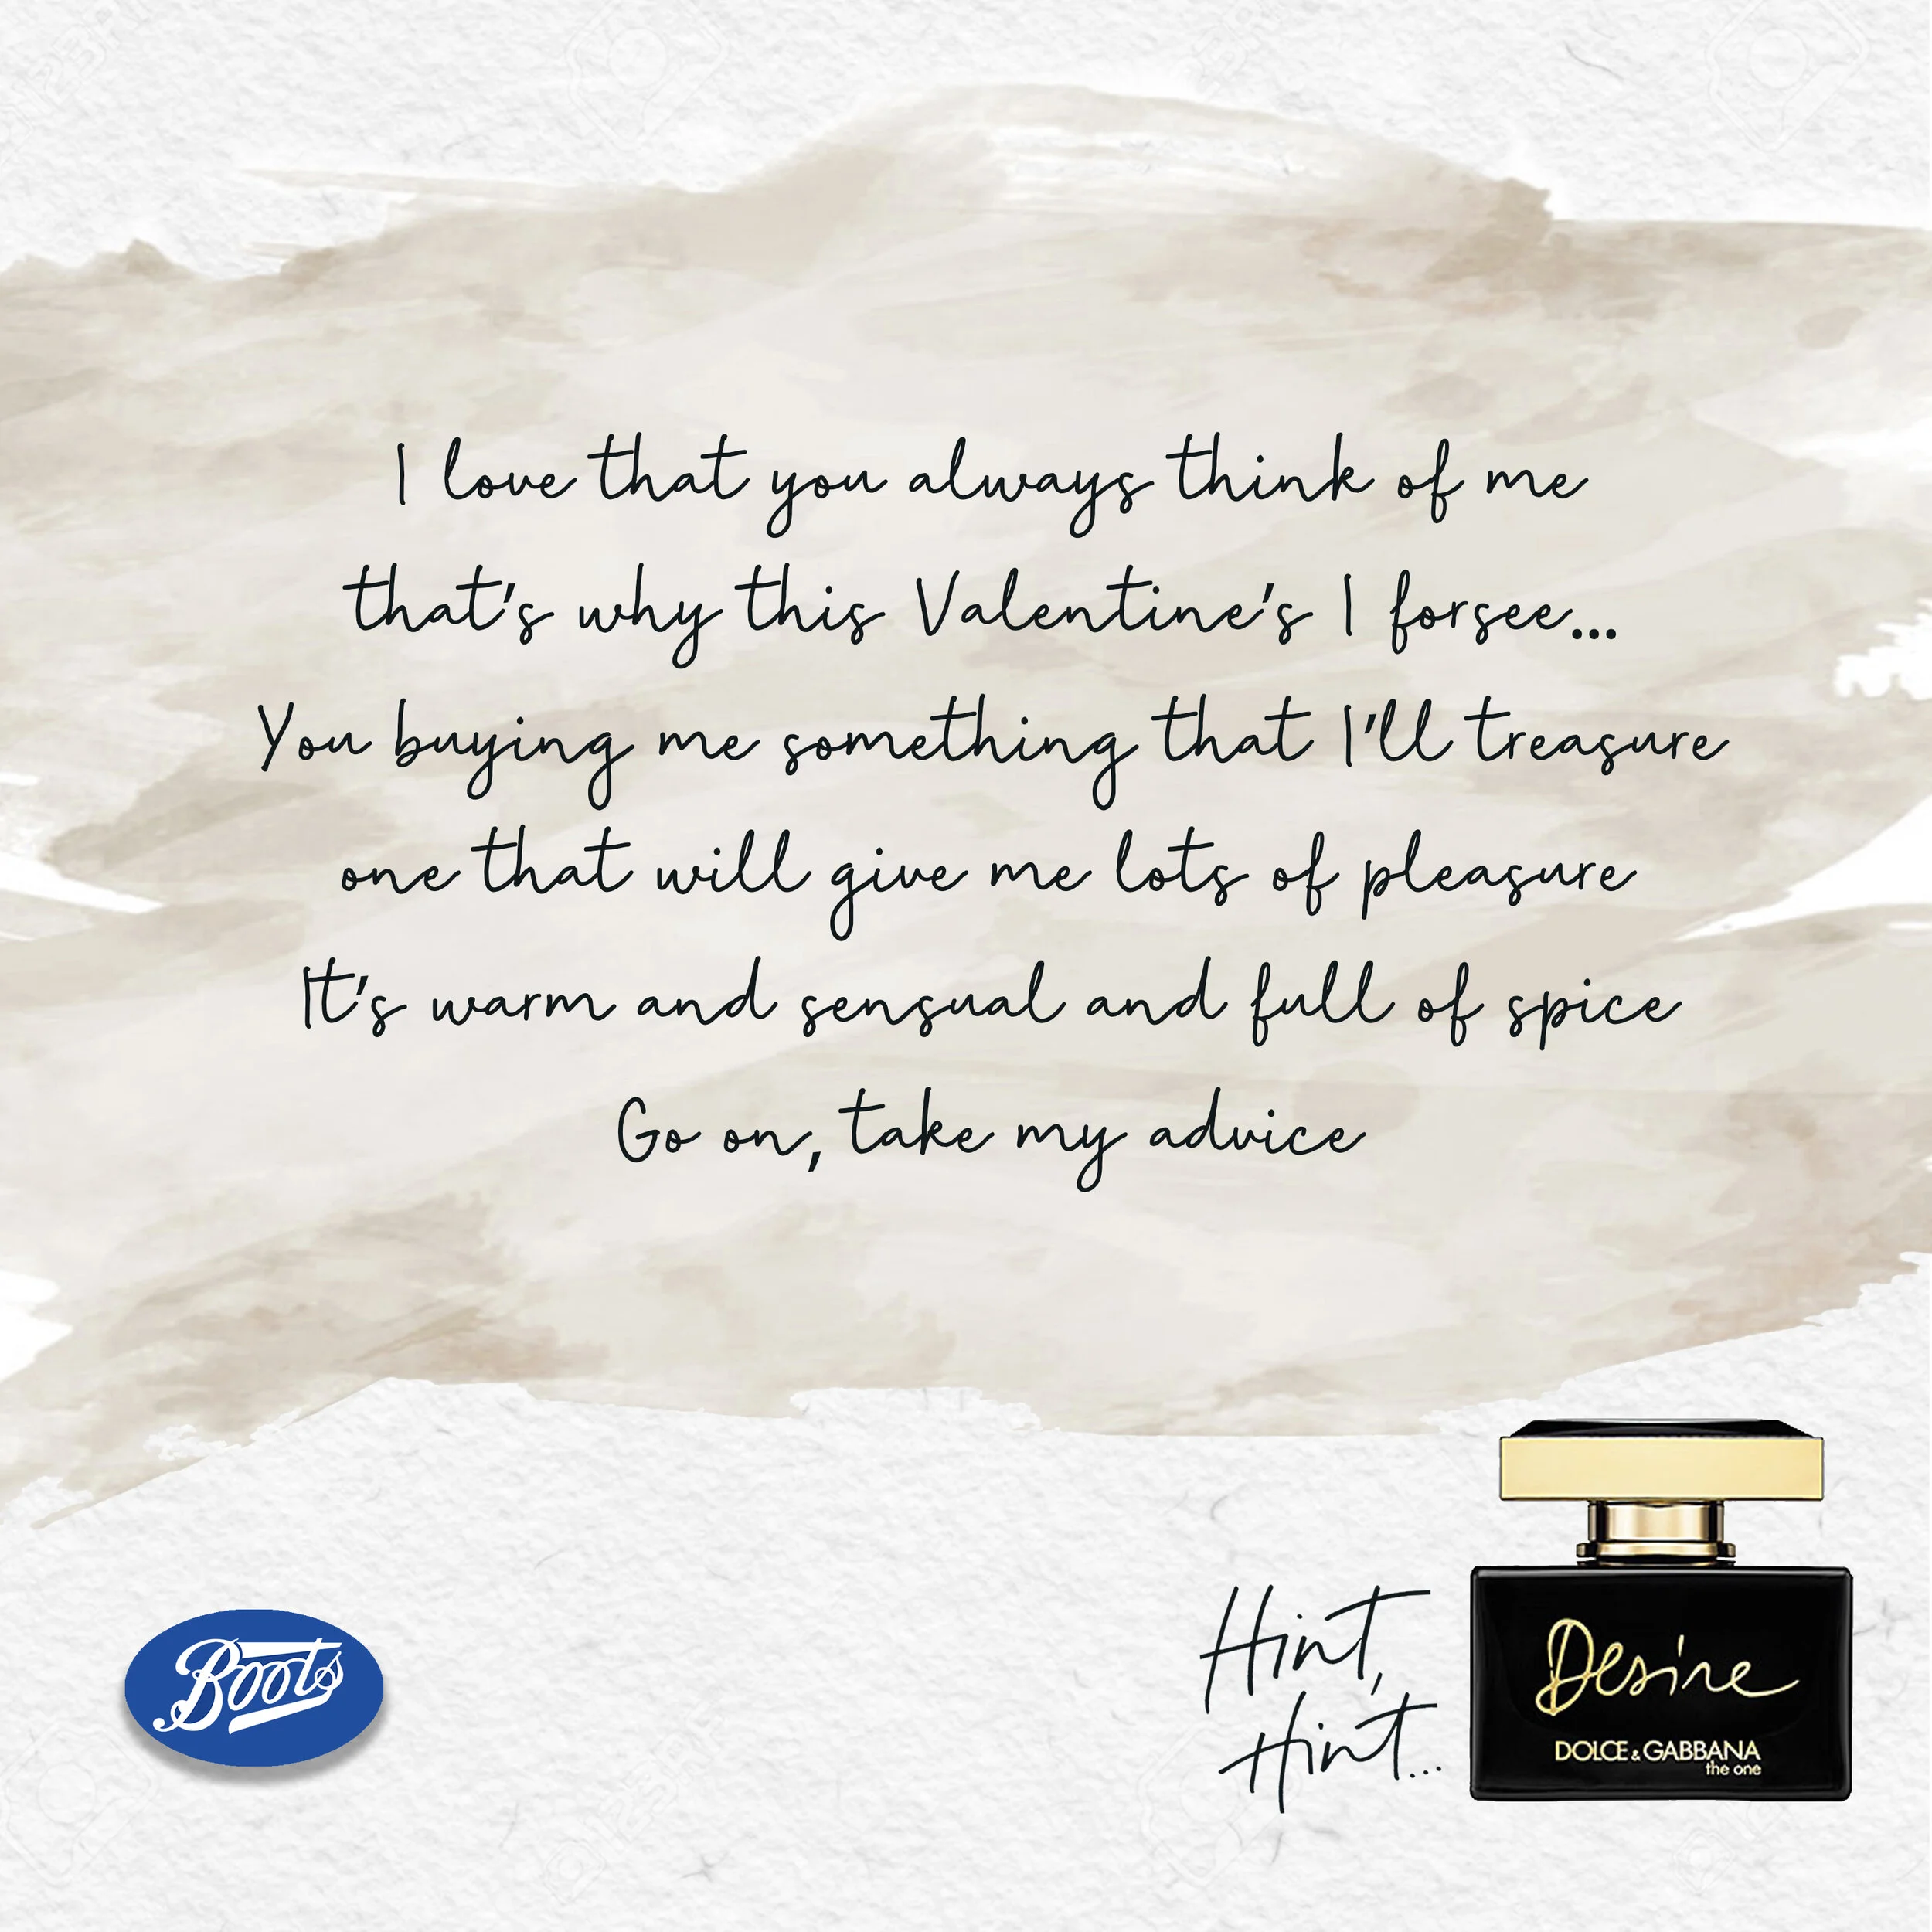 I love that you always think of me
that's why this Valentine's I forsee...
You buying me something that I'll treasure
one that will give me lots of pleasure
It's warm and sensual and full of spice
Go on, take my advice
Hint,
Hint...
Boots
Desire
DOLCE & GABBANA
the one